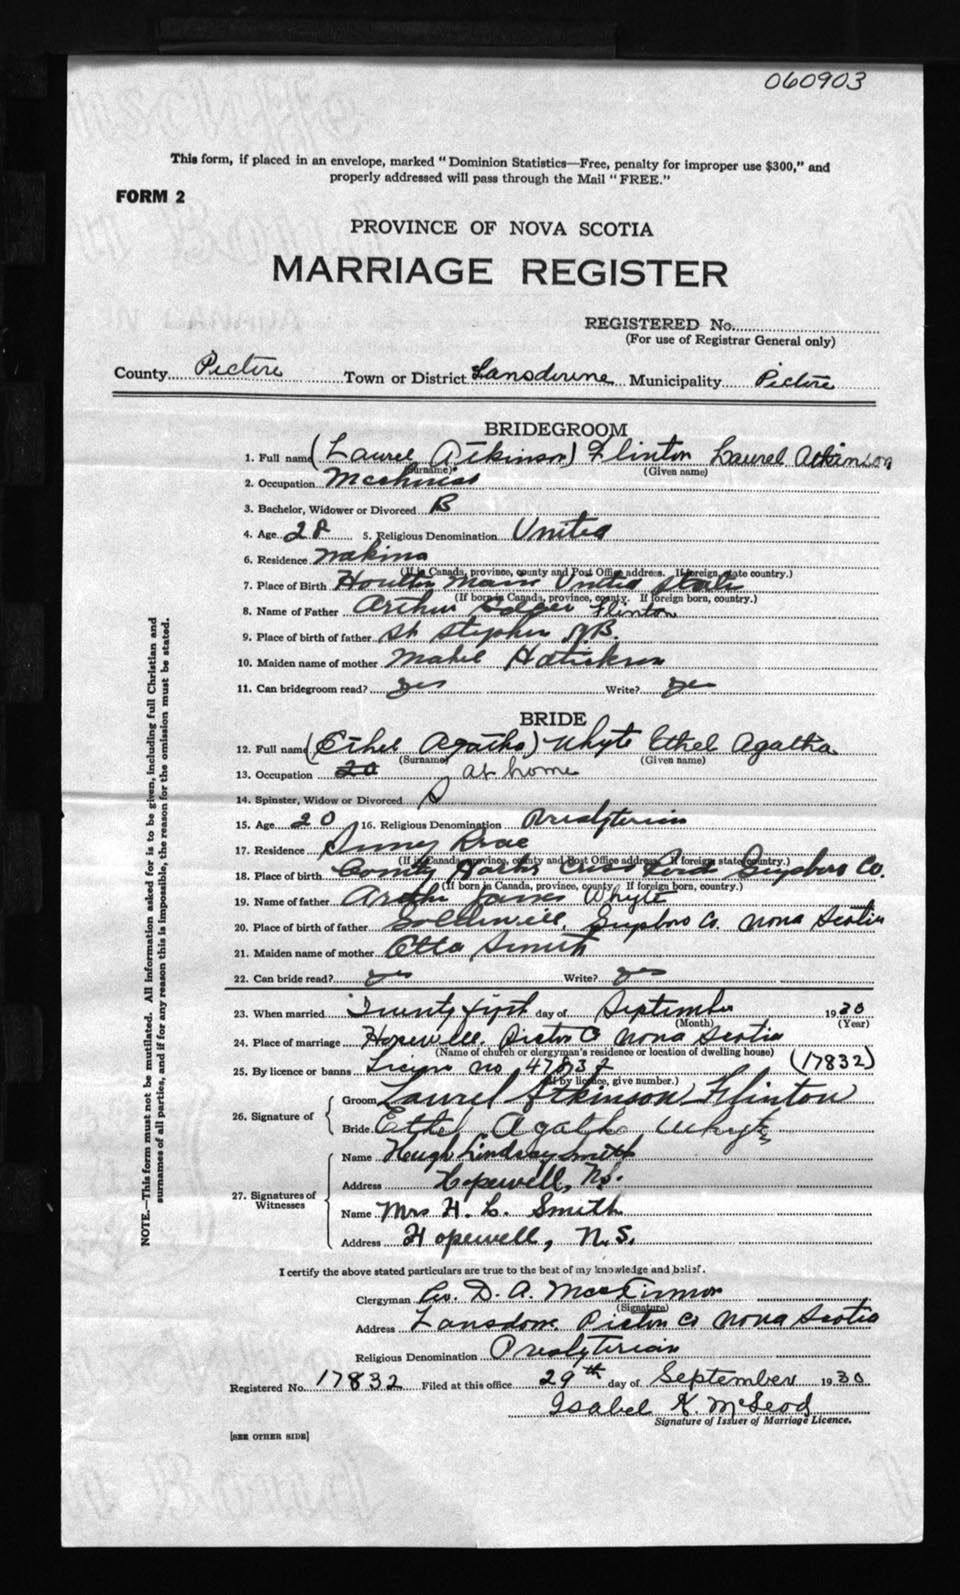 060903
This form, if placed in an envelope, marked "Dominion Statistics—Free, penalty for improper use $300," and
properly addressed will pass through the Mail "FREE."
FORM 2
PROVINCE OF NOVA SCOTIA
MARRIAGE REGISTER
REGISTERED No.
(For use of Registrar General only)
County Pictou Town or District Lansdowne Municipality Pictou
BRIDEGROOM
1. Full name (Laurel Atkinson) Flinton Laurel Atkinson
(Surname) (Given name)
2. Occupation
3. Bachelor, Widower or Divorced B
4. Age 28 5. Religious Denomination United
6. Residence
(If in Canada, province, county and Post Office address. If foreign, state country.)
7. Place of Birth Houlton Maine United State
(If born in Canada, province, county. If foreign born, country.)
8. Name of Father Arthur Flinton
9. Place of birth of father St Stephen N.B.
10. Maiden name of mother Mabel
11. Can bridegroom read? yes Write? yes
BRIDE
12. Full name (Ethel Agatha) Whyte Ethel Agatha
(Surname) (Given name)
13. Occupation 20 at home
14. Spinster, Widow or Divorced S
15. Age 20 16. Religious Denomination Presbyterian
17. Residence Sunny Brae
(If in Canada, province, county and Post Office address. If foreign, state country.)
18. Place of birth County Harbr Cross Roads Guysboro Co.
(If born in Canada, province, county. If foreign born, country.)
19. Name of father James Whyte
20. Place of birth of father Goldenville, Guysboro Co. Nova Scotia
21. Maiden name of mother Etta Smith
22. Can bride read? yes Write? yes
23. When married Twenty first day of September 1930
(Month) (Year)
24. Place of marriage Hopewell. Pictou Co Nova Scotia
(Name of church or clergyman's residence or location of dwelling house)
25. By licence or banns no (17832)
(If by licence, give number.)
26. Signature of
Groom Laurel Atkinson Flinton
Bride Ethel Agatha Whyte
27. Signatures of Witnesses
Name Hugh Lindsay Smith
Address Hopewell, N.S.
Name Mrs H. L. Smith
Address Hopewell, N.S.
I certify the above stated particulars are true to the best of my knowledge and belief.
Clergyman D. A. MacKinnon
(Signature)
Address Lansdowne Pictou Co Nova Scotia
Religious Denomination Presbyterian
Registered No. 17832 Filed at this office 29th day of September 1930
Isabel K. McLeod
Signature of Issuer of Marriage Licence.
[SEE OTHER SIDE]
NOTE.—This form must not be mutilated. All information asked for is to be given, including full Christian and
surnames of all parties, and if for any reason this is impossible, the reason for the omission must be stated.